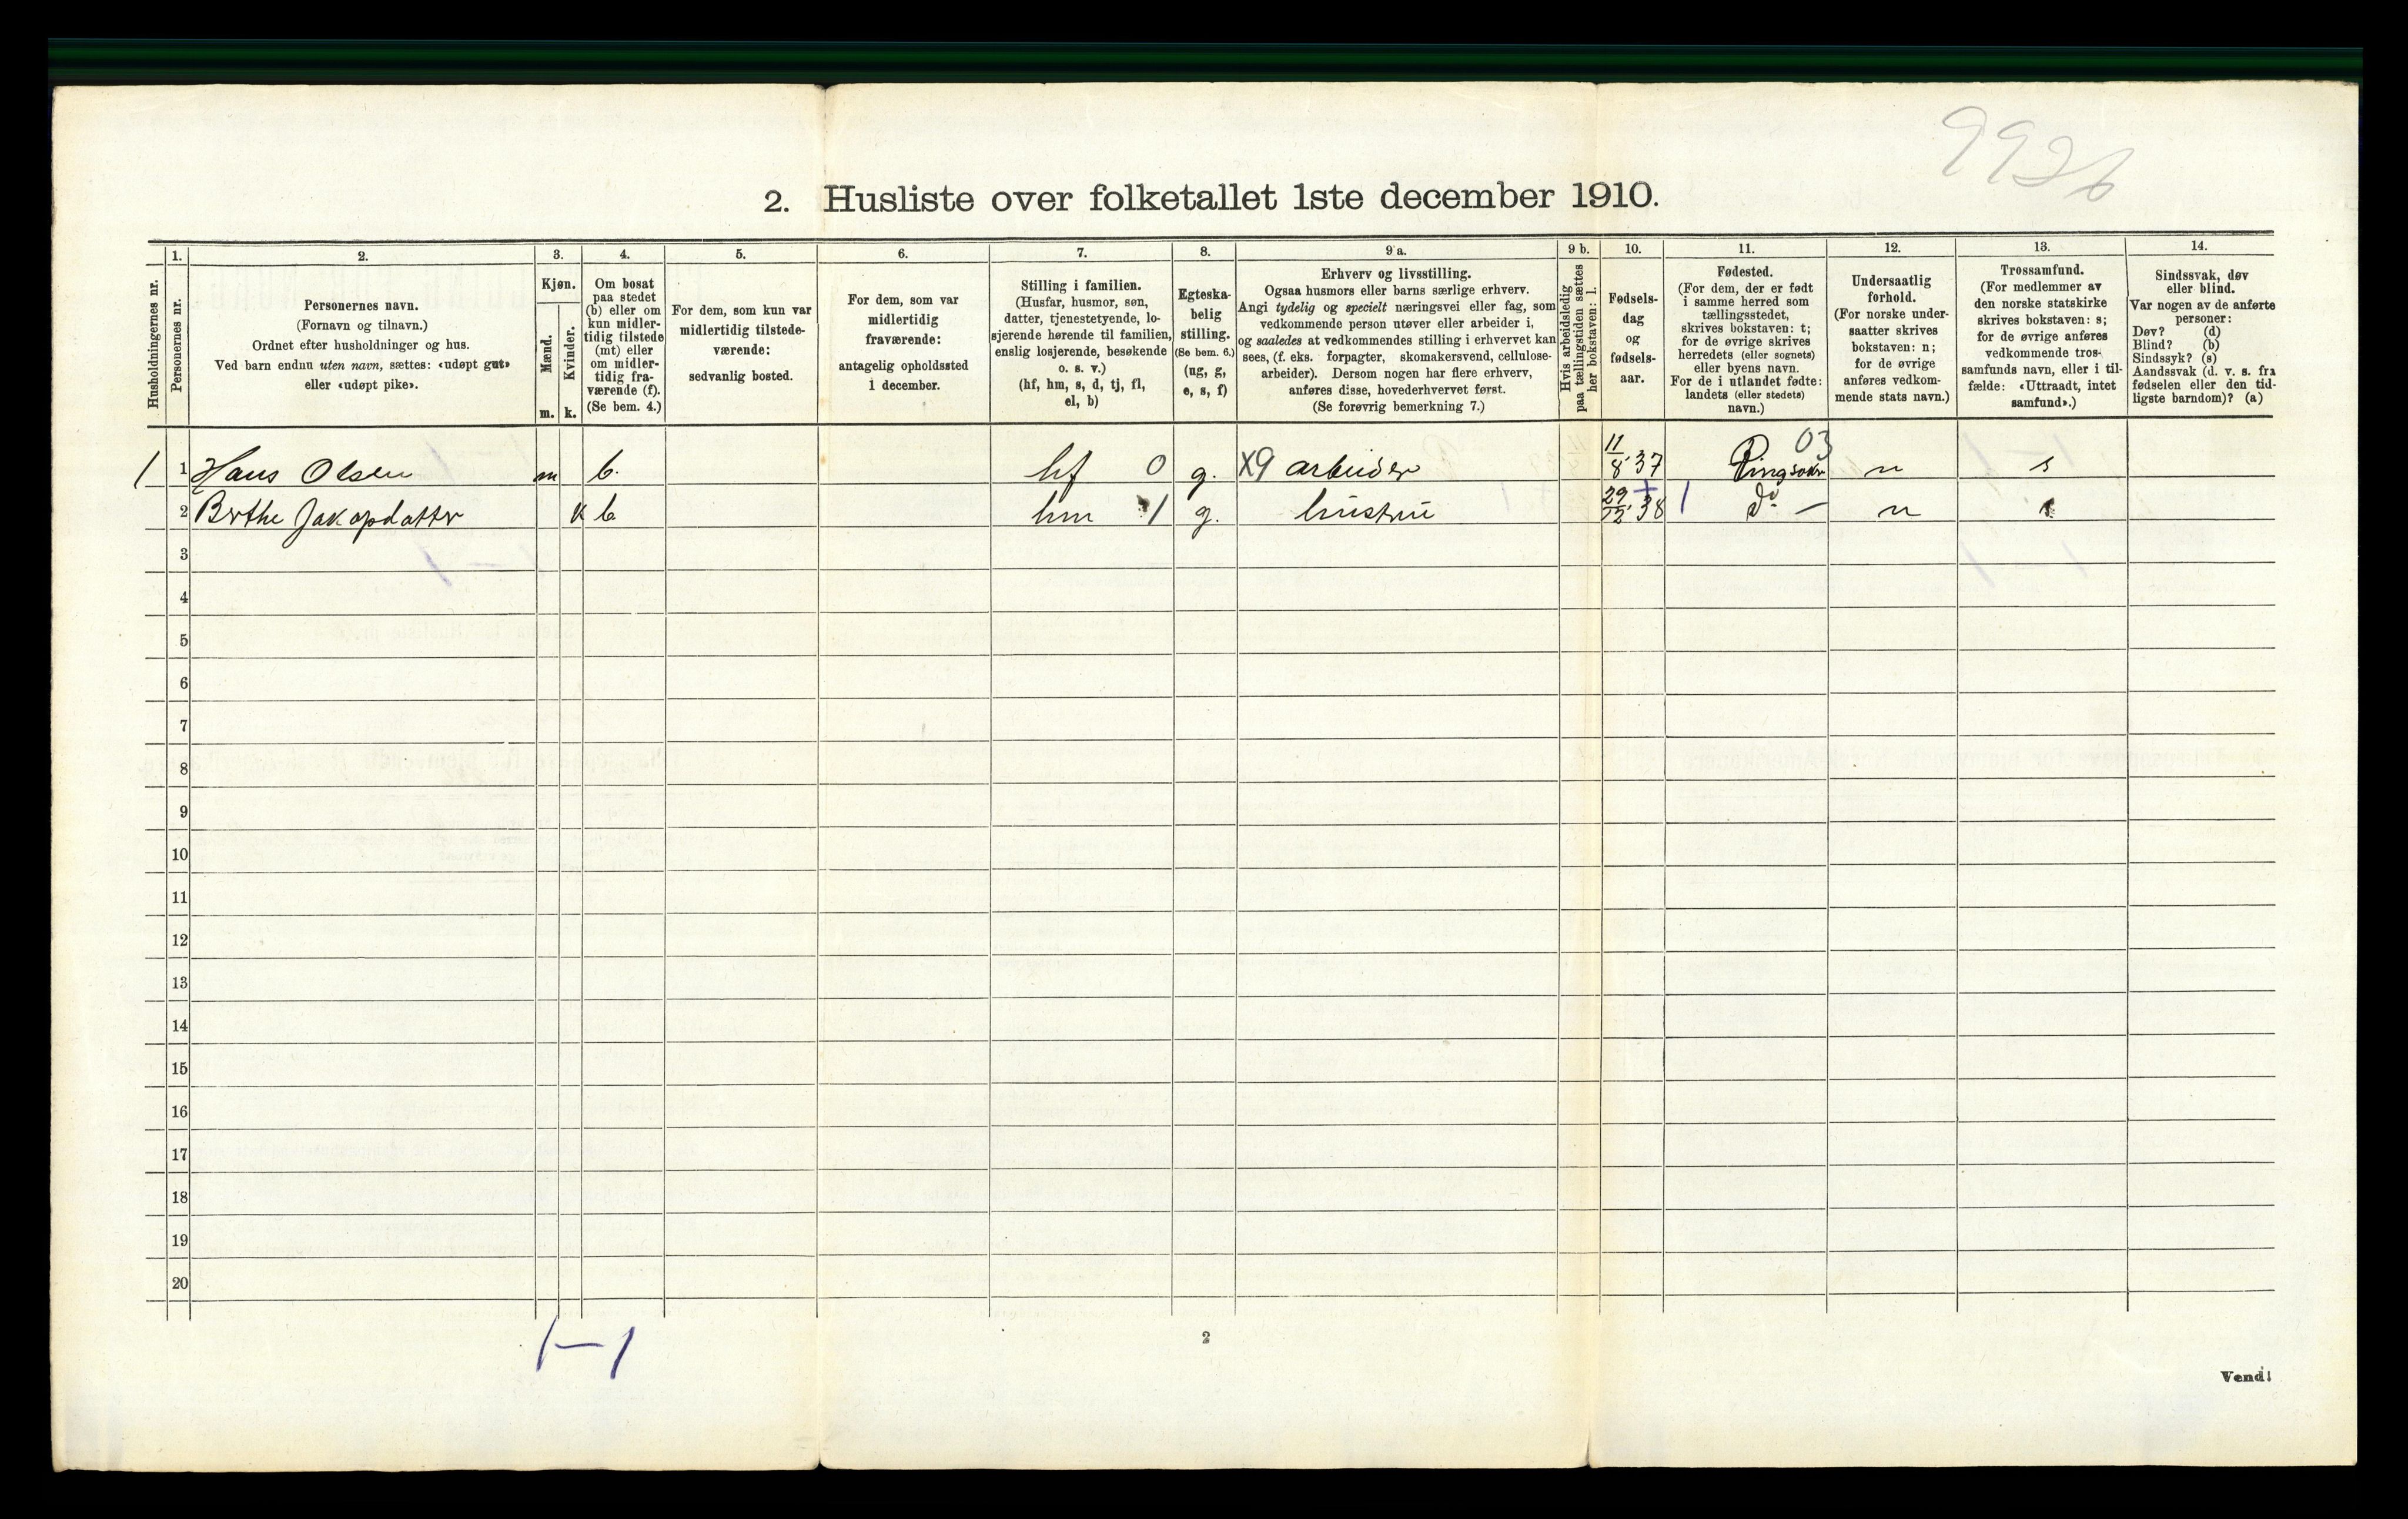 9926
2. Husliste over folketallet 1ste december 1910.
Husholdningernes nr.
1.
Personernes nr.
2.
Personernes navn.
(Fornavn og tilnavn.)
Ordnet efter husholdninger og hus.
Ved barn endnu uten navn, sættes: «udøpt gut»
eller «udøpt pike».
3.
Kjøn.
Mænd.
m.
Kvinder.
k.
4.
Om bosat
paa stedet
(b) eller om
kun midler-
tidig tilstede
(mt) eller
om midler-
tidig fra-
værende (f).
(Se bem. 4.)
5.
For dem, som kun var
midlertidig tilstede-
værende:
sedvanlig bosted.
6.
For dem, som var
midlertidig
fraværende:
antagelig opholdssted
1 december.
7.
Stilling i familien.
(Husfar, husmor, søn,
datter, tjenestetyende, lo-
sjerende hørende til familien,
enslig losjerende, besøkende
o. s. v.)
(hf, hm, s, d, tj, fl,
el, b)
8.
Egteska-
belig
stilling.
(Se bem. 6.)
(ug, g,
e, s, f)
9 a.
Erhverv og livsstilling.
Ogsaa husmors eller barns særlige erhverv.
Angi tydelig og specielt næringsvei eller fag, som
vedkommende person utøver eller arbeider i,
og saaledes at vedkommendes stilling i erhvervet kan
sees, (f. eks. forpagter, skomakersvend, cellulose-
arbeider). Dersom nogen har flere erhverv,
anføres disse, hovederhvervet først.
(Se forøvrig bemerkning 7.)
9 b.
Hvis arbeidsledig
paa tællingstiden sættes
her bokstaven: l.
10.
Fødsels-
dag
og
fødsels-
aar.
11.
Fødested.
(For dem, der er født
i samme herred som
tællingsstedet,
skrives bokstaven: t;
for de øvrige skrives
herredets (eller sognets)
eller byens navn.
For de i utlandet fødte:
landets (eller stedets)
navn.)
12.
Undersaatlig
forhold.
(For norske under-
saatter skrives
bokstaven: n;
for de øvrige
anføres vedkom-
mende stats navn.)
13.
Trossamfund.
(For medlemmer av
den norske statskirke
skrives bokstaven: s;
for de øvrige anføres
vedkommende tros-
samfunds navn, eller i til-
fælde: «Uttraadt, intet
samfund».)
14.
Sindssvak, døv
eller blind.
Var nogen av de anførte
personer:
Døv? (d)
Blind? (b)
Sindssyk? (s)
Aandssvak (d. v. s. fra
fødselen eller den tid-
ligste barndom)? (a)
1 1 Hans Olsen m b. hf 0 g. X9 arbeider 11/8 37 Ringsaker 03 n s
2 Berthe Jakopdatter k b hm 1 g. hustru 29/12 38 + 1 do — n s
3
4
5
6
7
8
9
10
11
12
13
14
15
16
17
18
19
20
1—1
2
Vend!